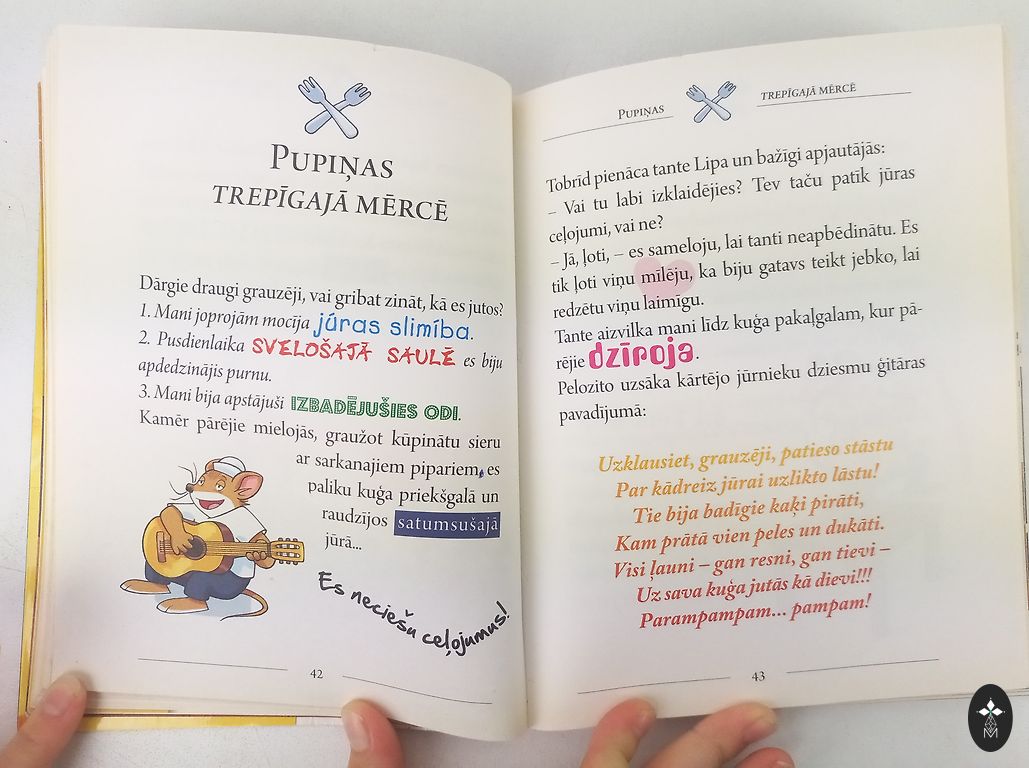 PUPIŅAS
TREPĪGAJĀ MĒRCĒ
Dārgie draugi grauzēji, vai gribat zināt, kā es jutos?
1. Mani joprojām mocīja jūras slimība.
2. Pusdienlaika SVELOŠAJĀ SAULĒ es biju
apdedzinājis purnu.
3. Mani bija apstājuši IZBADĒJUŠIES ODI.
Kamēr pārējie mielojās, graužot kūpinātu sieru
ar sarkanajiem pipariem, es
paliku kuģa priekšgalā un
raudzījos satumsušajā
jūrā...
Es neciešu ceļojumus!
42
PUPIŅAS TREPĪGAJĀ MĒRCĒ
Tobrīd pienāca tante Lipa un bažīgi apjautājās:
– Vai tu labi izklaidējies? Tev taču patīk jūras
ceļojumi, vai ne?
– Jā, ļoti, – es sameloju, lai tanti neapbēdinātu. Es
tik ļoti viņu mīlēju, ka biju gatavs teikt jebko, lai
redzētu viņu laimīgu.
Tante aizvilka mani līdz kuģa pakaļgalam, kur pā-
rējie dzīroja.
Pelozito uzsāka kārtējo jūrnieku dziesmu ģitāras
pavadījumā:
Uzklausiet, grauzēji, patieso stāstu
Par kādreiz jūrai uzlikto lāstu!
Tie bija badīgie kaķi pirāti,
Kam prātā vien peles un dukāti.
Visi ļauni – gan resni, gan tievi –
Uz sava kuģa jutās kā dievi!!!
Parampampam... pampam!
43
M